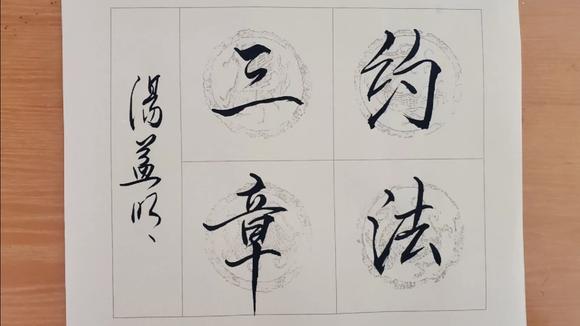 约法
三章
湯益明